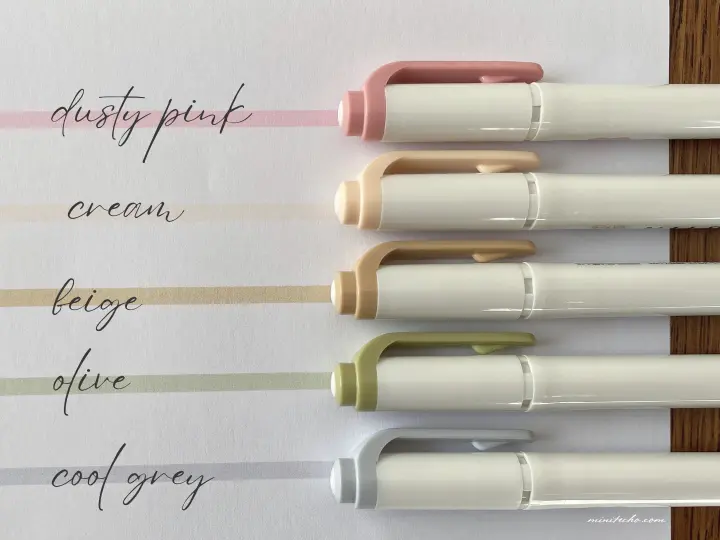 dusty pink
cream
beige
olive
cool grey
minitecho.com